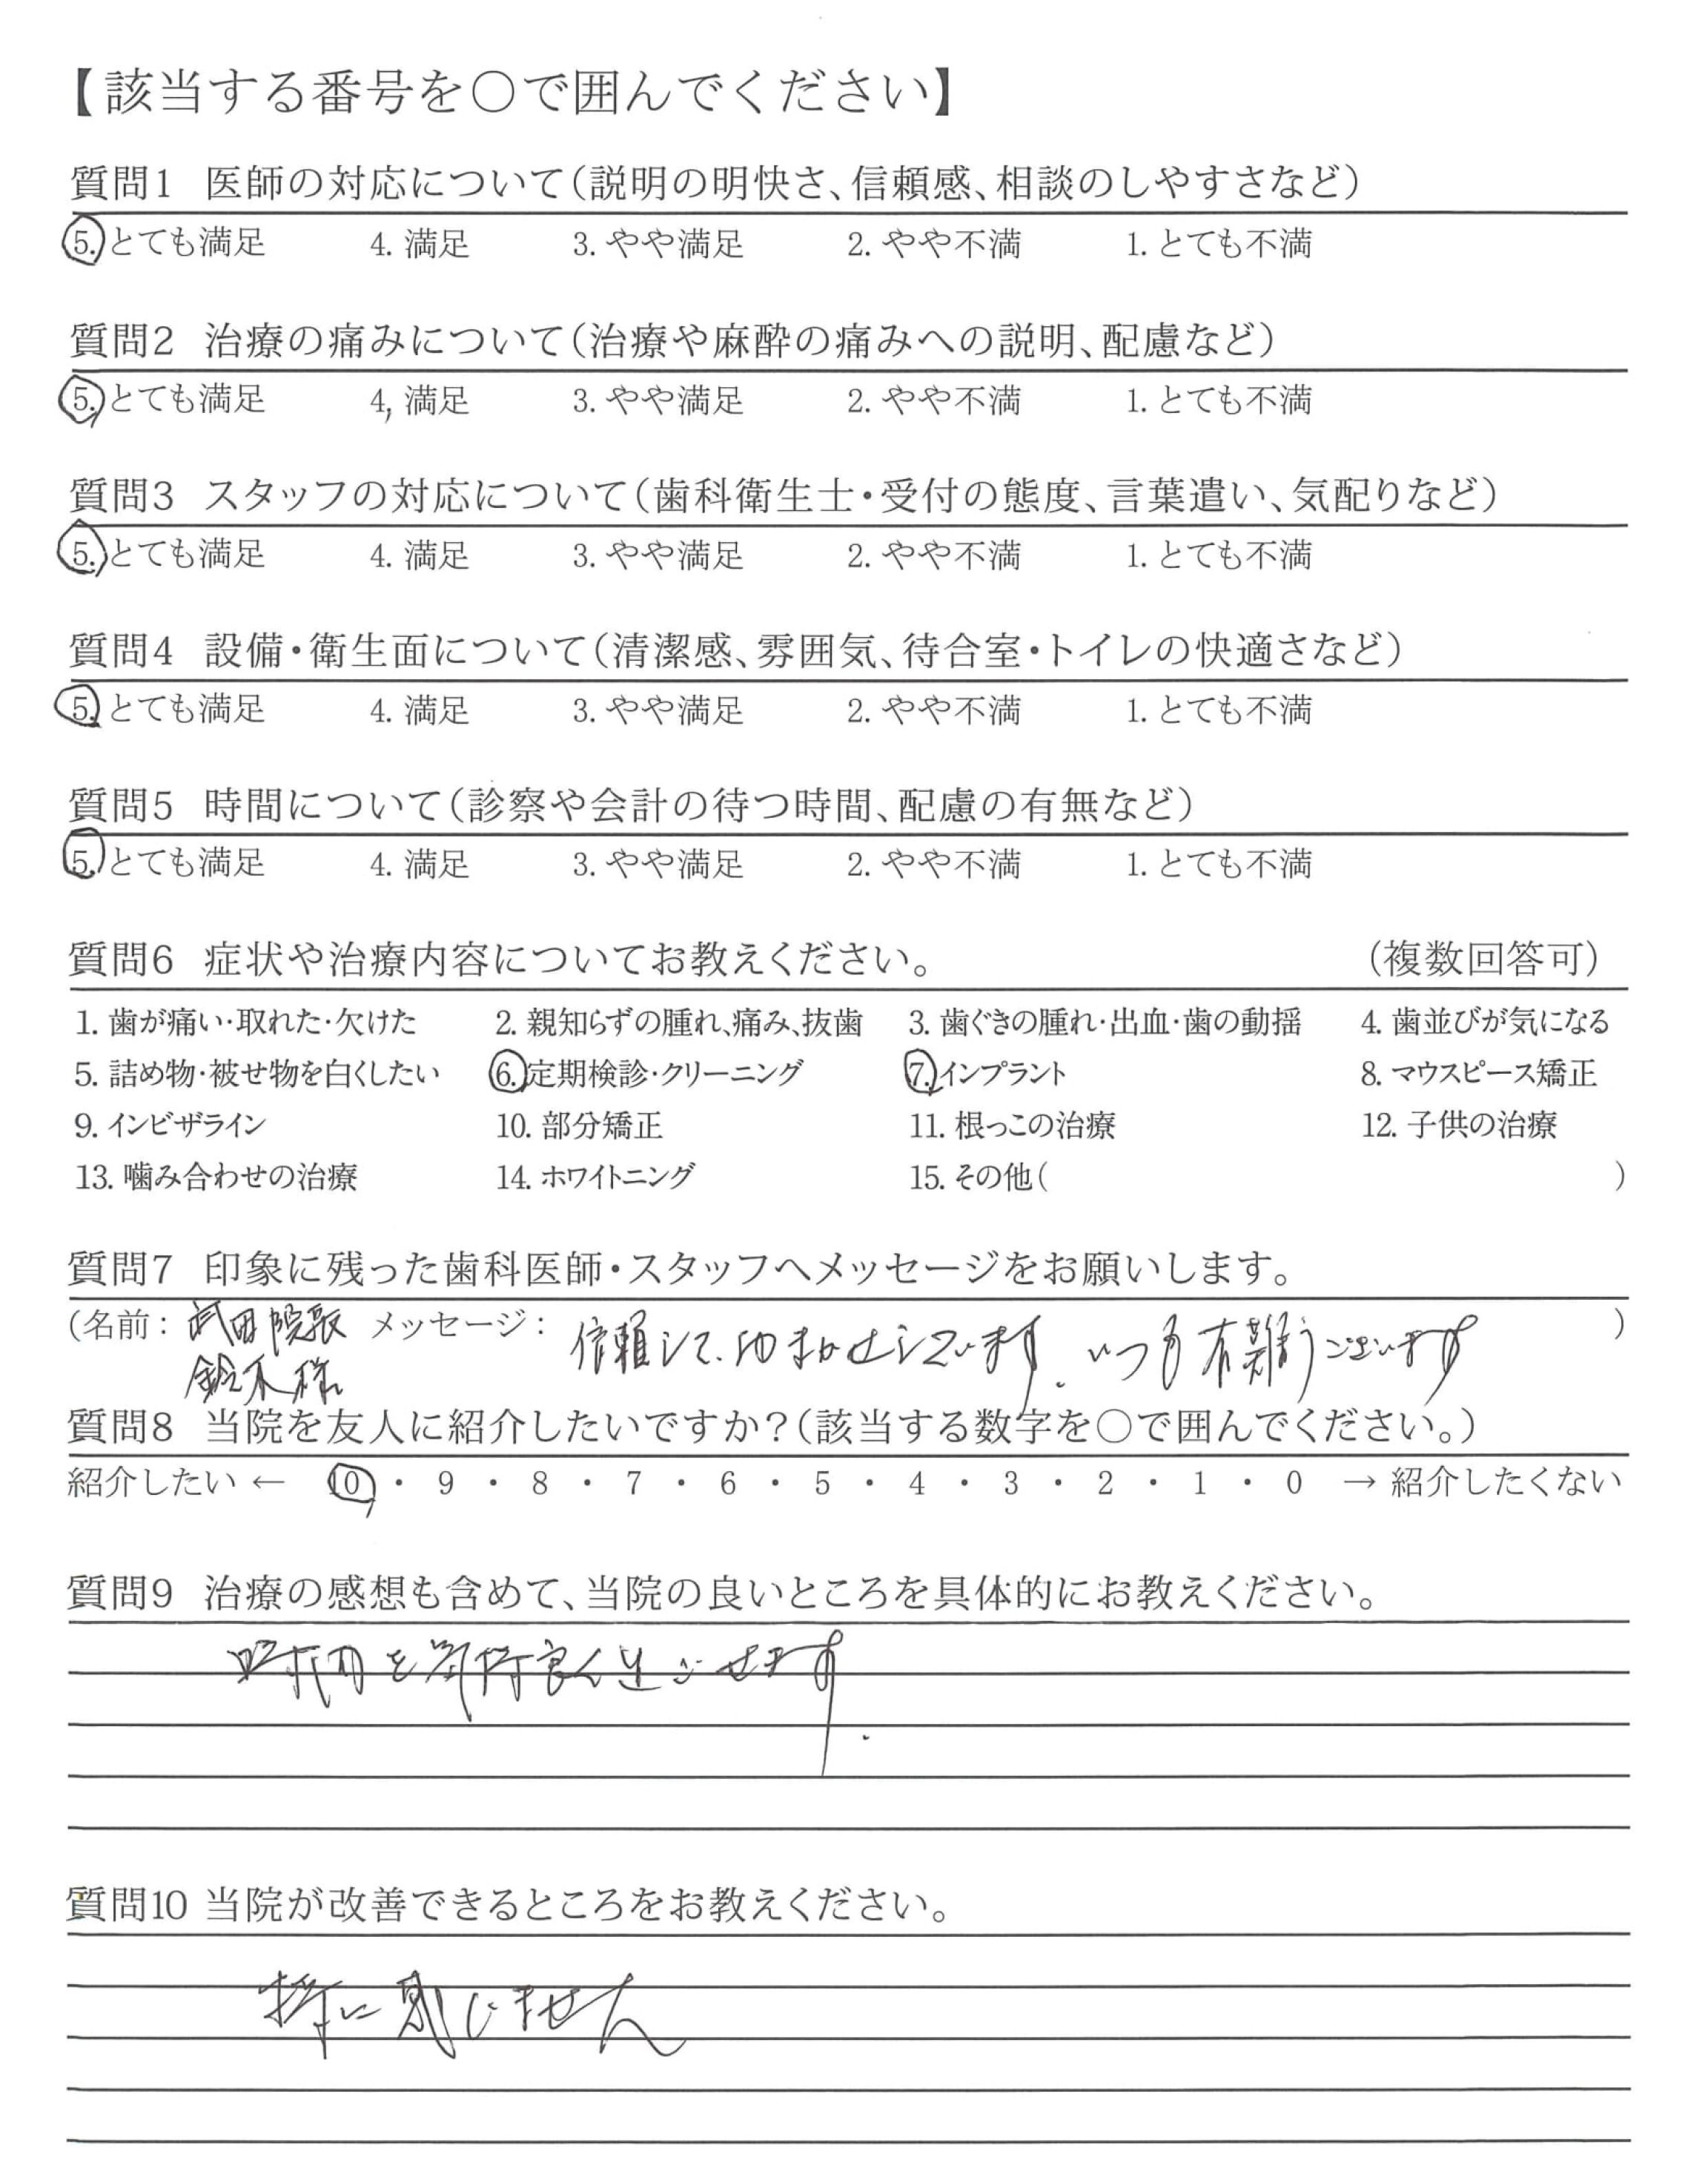 【該当する番号を○で囲んでください】
質問1 医師の対応について(説明の明快さ、信頼感、相談のしやすさなど)
5. とても満足 4. 満足 3. やや満足 2. やや不満 1. とても不満
質問2 治療の痛みについて(治療や麻酔の痛みへの説明、配慮など)
5. とても満足 4, 満足 3. やや満足 2. やや不満 1. とても不満
質問3 スタッフの対応について(歯科衛生士・受付の態度、言葉遣い、気配りなど)
5. とても満足 4. 満足 3. やや満足 2. やや不満 1. とても不満
質問4 設備・衛生面について(清潔感、雰囲気、待合室・トイレの快適さなど)
5. とても満足 4. 満足 3. やや満足 2. やや不満 1. とても不満
質問5 時間について(診察や会計の待つ時間、配慮の有無など)
5. とても満足 4. 満足 3. やや満足 2. やや不満 1. とても不満
質問6 症状や治療内容についてお教えください。 (複数回答可)
1. 歯が痛い・取れた・欠けた 2. 親知らずの腫れ、痛み、抜歯 3. 歯ぐきの腫れ・出血・歯の動揺 4. 歯並びが気になる
5. 詰め物・被せ物を白くしたい 6. 定期検診・クリーニング 7. インプラント 8. マウスピース矯正
9. インビザライン 10. 部分矯正 11. 根っこの治療 12. 子供の治療
13. 噛み合わせの治療 14. ホワイトニング 15. その他( )
質問7 印象に残った歯科医師・スタッフへメッセージをお願いします。
(名前: 武田院長 メッセージ: 信頼して、おまかせしています。いつも有難うございます )
鈴木様
質問8 当院を友人に紹介したいですか?(該当する数字を○で囲んでください。)
紹介したい ← 10 ・ 9 ・ 8 ・ 7 ・ 6 ・ 5 ・ 4 ・ 3 ・ 2 ・ 1 ・ 0 → 紹介したくない
質問9 治療の感想も含めて、当院の良いところを具体的にお教えください。
時間を気持良く過ごせます。
質問10 当院が改善できるところをお教えください。
特に感じません